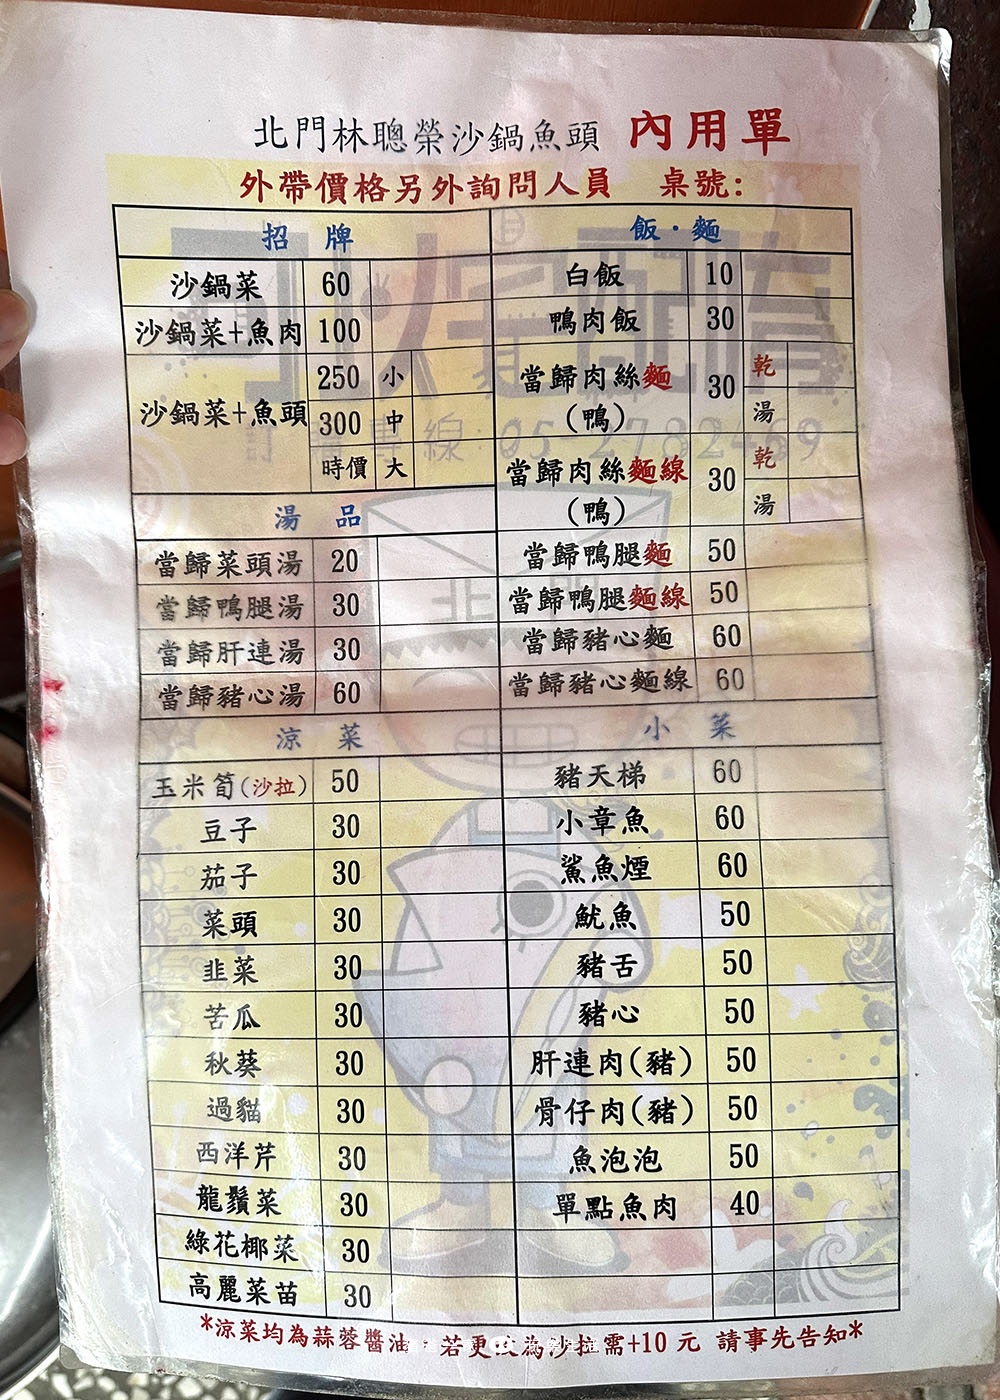 北門林聰榮沙鍋魚頭 內用單
外帶價格另外詢問人員 桌號:
招牌
沙鍋菜 60
沙鍋菜+魚肉 100
沙鍋菜+魚頭 250 小
300 中
時價 大
湯品
當歸菜頭湯 20
當歸鴨腿湯 30
當歸肝連湯 30
當歸豬心湯 60
涼菜
玉米筍(沙拉) 50
豆子 30
茄子 30
菜頭 30
韭菜 30
苦瓜 30
秋葵 30
過貓 30
西洋芹 30
龍鬚菜 30
綠花椰菜 30
高麗菜苗 30
飯·麵
白飯 10
鴨肉飯 30
當歸肉絲麵(鴨) 30 乾
湯
當歸肉絲麵線(鴨) 30 乾
湯
當歸鴨腿麵 50
當歸鴨腿麵線 50
當歸豬心麵 60
當歸豬心麵線 60
小菜
豬天梯 60
小章魚 60
鯊魚煙 60
魷魚 50
豬舌 50
豬心 50
肝連肉(豬) 50
骨仔肉(豬) 50
魚泡泡 50
單點魚肉 40
*涼菜均為蒜蓉醬油 若更改為沙拉需+10元 請事先告知*
專線:05-2782469
北門